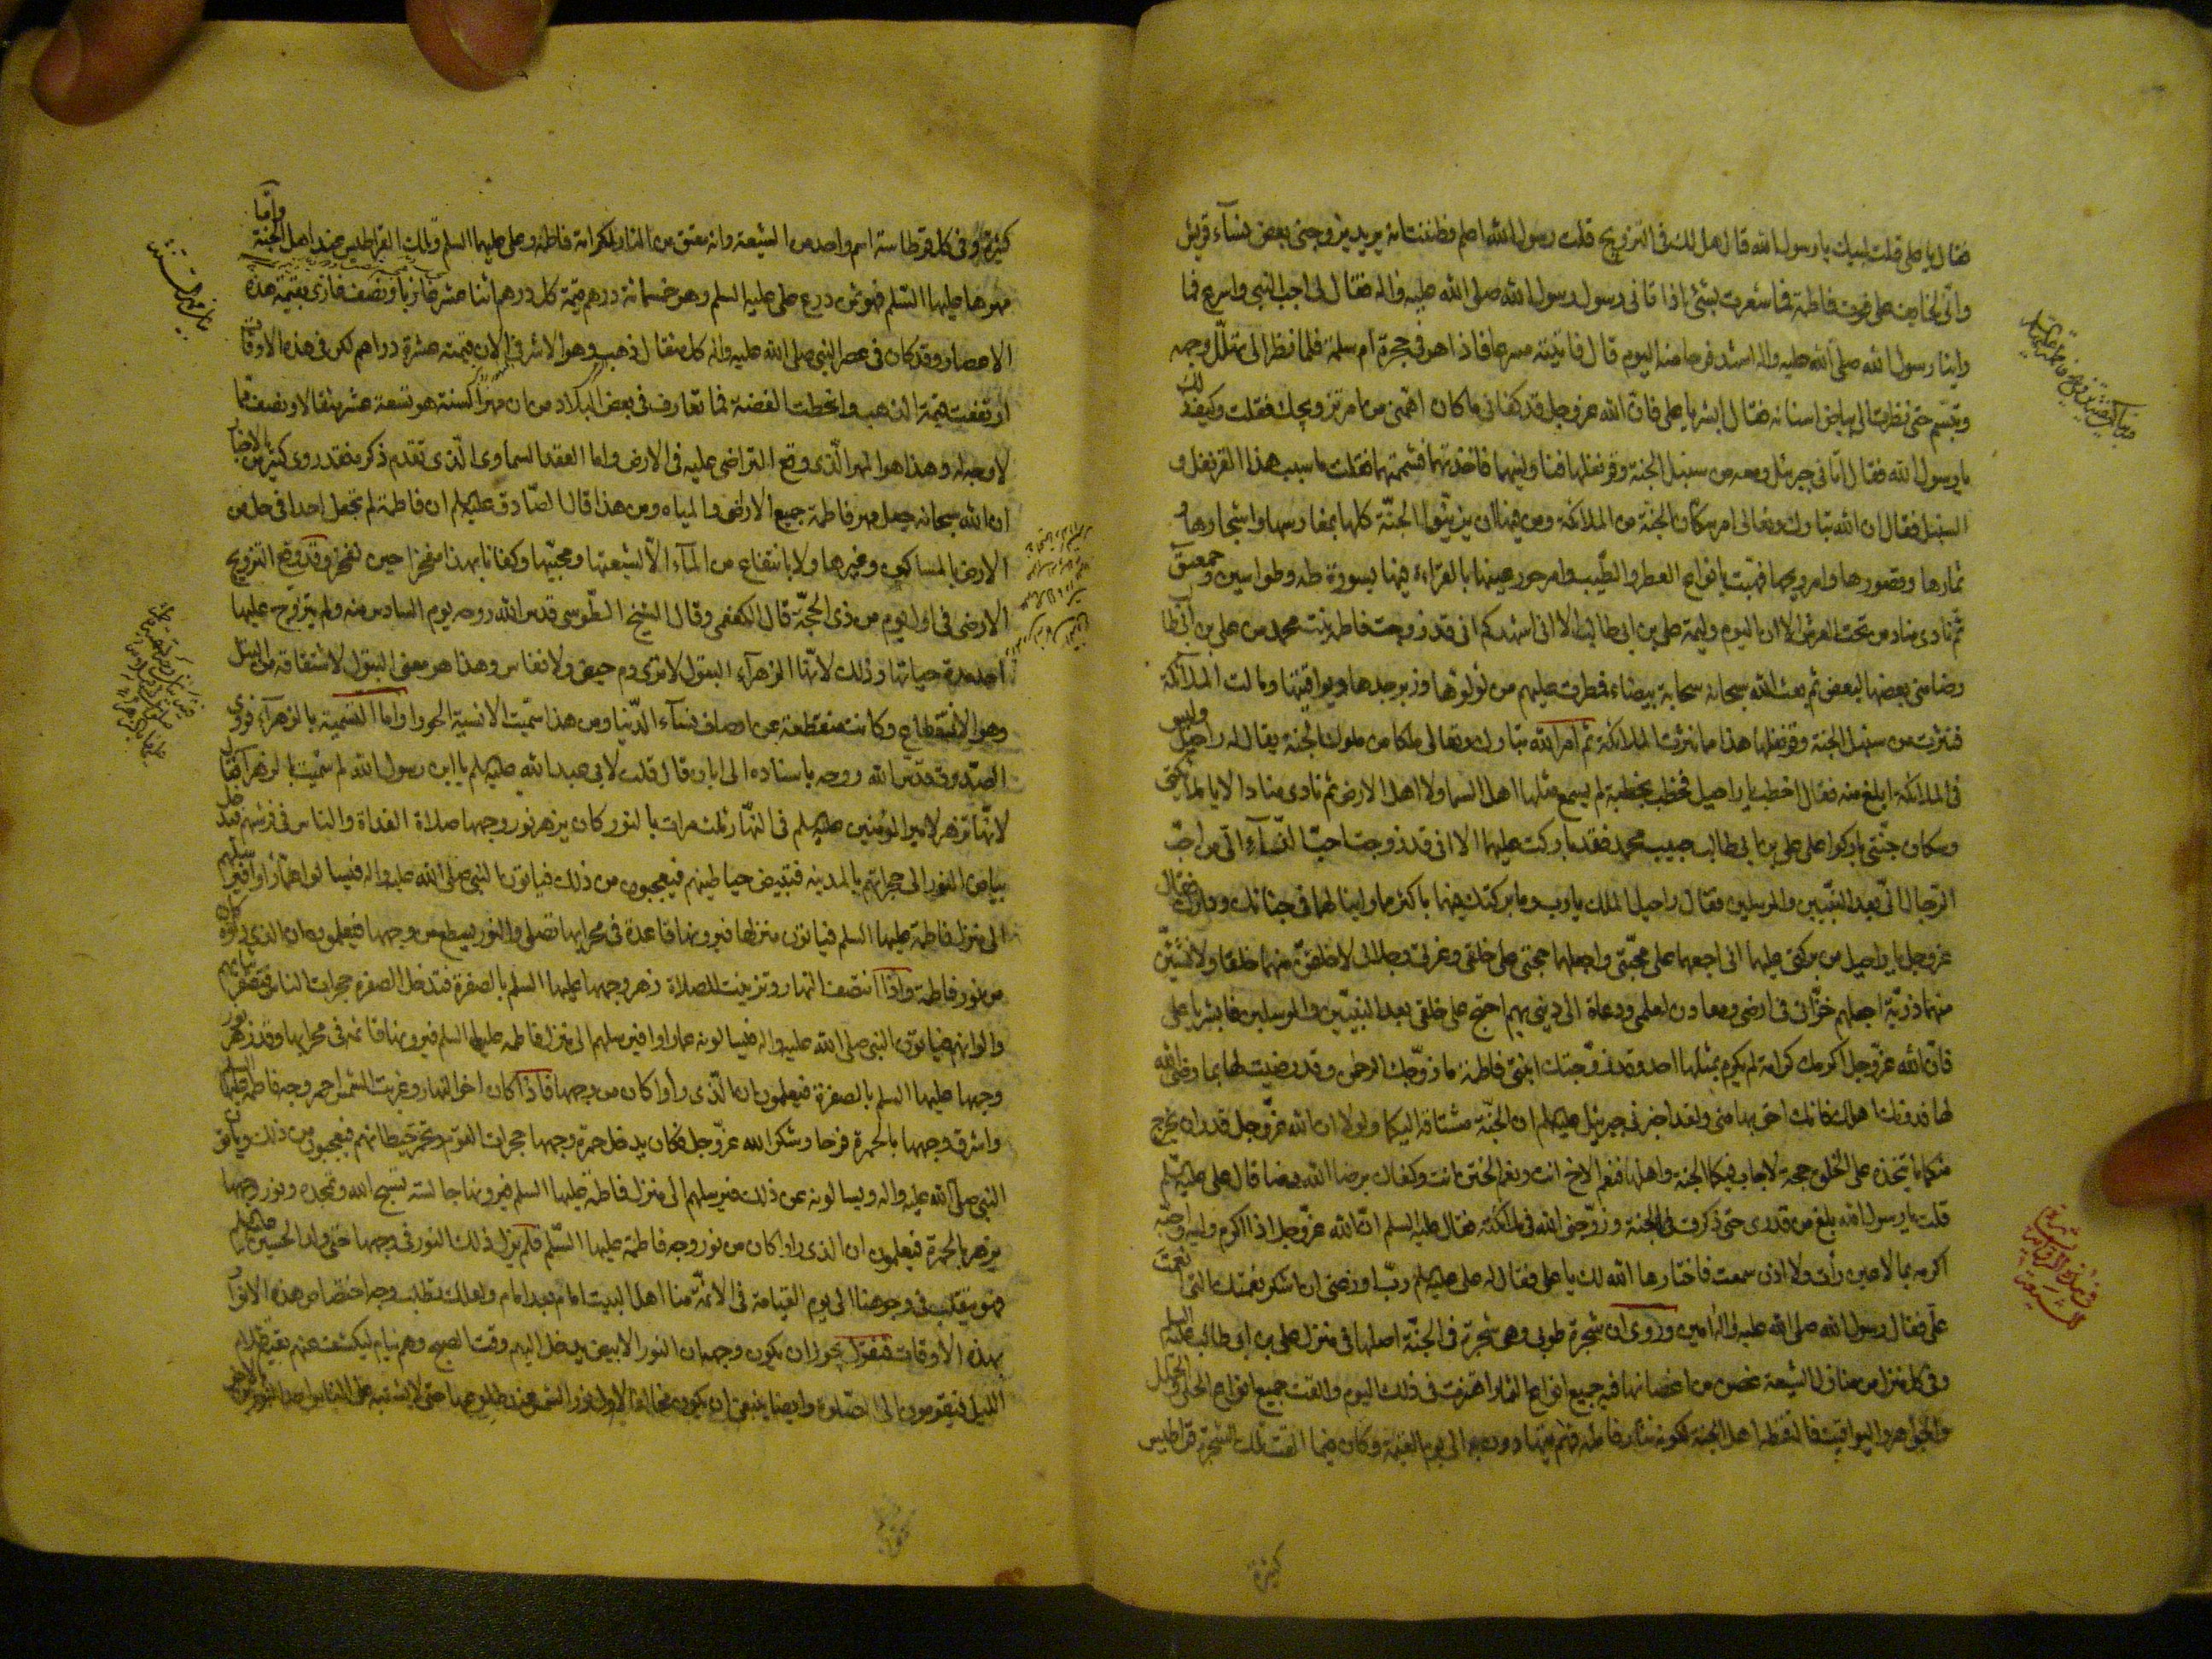 فقال يا علي قلت لبيك يا رسول الله قال هل لك في التزويج قلت رسول الله اعلم فظننت انه يريد يزوجني بعض نسآء قريش
واني لخايف على فوت فاطمة فما شعرت بشئ اذا تاني رسول رسول الله صلى الله عليه واله فقال لي اجب النبي واسرع فما
راينا رسول الله صلى الله عليه واله اشد فرحا منه اليوم قال فاتيته مسرعا فاذا هو في حجرة ام سلمة فلما نظر الي تهلل وجهه
وتبسم حتى نظرت الى بياض اسنانه فقال ابشر يا علي فان الله عزوجل قد كفاني ما كان اهمني من امر تزويجك فقلت وكيف ذلك
يا رسول الله فقال اتاني جبرئيل ومعه من سنبل الجنة وقرنفلها فناولنيهما فاخذتهما فشممتهما فقلت ما سبب هذا القرنفل و
السنبل فقال ان الله تبارك وتعالى امر سكان الجنة من الملائكة ومن فيها ان يزينوا الجنة كلها بمغارسها واشجارها و
ثمارها وقصورها وامر ريحها فهبت بانواع العطر والطيب وامر حور عينها بالقراءة فيها بسورة طه وطواسين وحمعسق
ثم نادى مناد من تحت العرش الا ان اليوم وليمة علي بن ابي طالب الا اني اشهدكم اني قد زوجت فاطمة بنت محمد من علي بن ابي طالب
رضا مني بعضها لبعض ثم بعث الله سبحانه سحابة بيضاء فقطرت عليهم من لؤلؤها وزبرجدها ويواقيتها وقالت الملائكة
فنثرت من سنبل الجنة وقرنفلها هذا ما نثرت الملائكة ثم امر الله تبارك وتعالى ملكا من ملوك الجنة يقال له راحيل وليس
في الملائكة ابلغ منه فقال اخطب يا راحيل فخطب بخطبة لم يسمع مثلها اهل السما ولا اهل الارض ثم نادى مناد الا يا ملائكتي
وسكان جنتي باركوا على علي بن ابي طالب حبيب محمد فقد باركت عليهما الا اني قد زوجت احب النسآء الي من احب
الرجال الي بعد النبيين والمرسلين فقال راحيل الملك يا رب وما بركتك فيهما باكثر مما راينا لهما في جنانك ودارك فقال
عزوجل يا راحيل من بركتي عليهما اني اجمعهما على محبتي واجعلهما حجتي على خلقي وعزتي وجلالي لاخلقن منهما خلقا ولانشئن
منهما ذرية اجعلهم خزاني في ارضي ومعادن لعلمي ودعاة الى ديني بهم احتج على خلقي بعد النبيين والمرسلين فابشر يا علي
فان الله عز وجل اكرمك كرامة لم يكرم بمثلها احد وقد زوجتك ابنتي فاطمة ما زوجك الرحمن وقد رضيت لها بما رضي الله
لها فدونك اهلك فانك احق بها مني ولقد اخبرني جبرئيل عليه السلم ان الجنة مشتاقة اليكما ولولا ان الله عزوجل قدر ان يخرج
منكما ما يتخذه على الخلق حجة لاجاب فيكما الجنة واهلها فنعم الاخ انت ونعم الختن انت وكفاك برضا الله رضا قال علي عليه السلم
قلت يا رسول الله بلغ من قدري حتى ذكرت في الجنة وزوجني الله في ملائكته فقال عليه السلم ان الله عزوجل اذا اكرم وليه واحبه
اكرمه بما لا عين رأت ولا اذن سمعت فاختارها الله لك يا علي فقال له علي عليه السلم رب اوزعني ان اشكر نعمتك التي انعمت
علي فقال رسول الله صلى الله عليه واله امين وروي ان شجرة طوبى وهي شجرة في الجنة اصلها في منزل علي بن ابي طالب عليه السلم
وفي كل منزل من منازل الشيعة غصن من اغصانها فيه جميع انواع الثمار اهتزت في ذلك اليوم والقت جميع انواع الحلي والحلل
والجواهر واليواقيت فالتقطه اهل الجنة لكونه نثار فاطمة فهم يتهادون به الى يوم القيمة وكان فيما القت تلك الشجرة قراطيس
كثيرة
كثيرة وفي كل قرطاسة اسم واحد من الشيعة وانه معتق من النار لكرامة فاطمة وعلي عليهما السلم وتلك القراطيس عند اهل الجنة واما
مهرها عليها السلم فهو ثمن درع علي عليه السلم وهو خمسمائة درهم قيمة كل درهم اثنا عشر غازيا ونصف غازي بقيمة هذه
الاعصار وقد كان في عصر النبي صلى الله عليه واله كل مثقال ذهب وهو الاشرفي الان قيمته عشرة دراهم لكن في هذه الاوقات
ارتفعت قيمة الذهب وانحطت الفضة فما تعارف في بعض البلاد من ان مهر السنة هو تسعة عشر مثقالا ونصف مما
لا وجه له وهذا هو المهر الذي وقع التراضي عليه في الارض واما العقد السماوي الذي تقدم ذكره فقد روى كثير من الاخبار
ان الله سبحانه جعل مهر فاطمة جميع الارض والمياه ومن هذا قال الصادق عليه السلم ان فاطمة لم تجعل احدا في حل من
الارض بالمساكن وغيرها ولا بانتفاع من المآء الا لشيعتها ومحبيها وكفانا بهذا مفخرا حين نفخر وقد وقع التزويج
الارضي في اول يوم من ذي الحجة قال الكفعمي وقال الشيخ الطوسي قدس الله روحه يوم السادس منه ولم يتزوج عليها
احد مدة حياتها وذلك لانها الزهراء البتول لا ترى دم حيض ولا نفاس وهذا هو معنى البتول لاشتقاقه من البتل
وهو الانقطاع وكانت منقطعة عن اوصاف نسآء الدنيا ومن هذا سميت الانسية الحورا واما التسمية بالزهرآء فروى
الصدوق قدس الله روحه باسناده الى ابان قال قلت لابي عبد الله عليه السلم يا ابن رسول الله لم سميت بالزهرا فقال
لانها تزهر لامير المؤمنين عليه السلم في النهار ثلث مرات بالنور كان يزهر نور وجهها صلاة الغداة والناس في فرشهم فيدخل
بياض النور الى حجراتهم بالمدينه فتبيض حيطانهم فيعجبون من ذلك فياتون النبي صلى الله عليه واله فيسالوا عما راوا فيرسلهم
الى منزل فاطمة عليها السلم فياتون منزلها فيرونها قاعدة في محرابها تصلي والنور يسطع من وجهها فيعلمون ان الذي راوه كان
من نور فاطمة واذا انتصف النهار وتزينت للصلاة زهر وجهها عليها السلم بالصفرة فتدخل الصفرة حجرات الناس فتصفر ثيابهم
والوانهم فياتون النبي صلى الله عليه واله فيسالونه عما راوا فيرسلهم الى منزل فاطمه عليها السلم فيرونها قائمة في محرابها وقد زهر نور
وجهها عليها السلم بالصفرة فيعلمون ان الذي رأوا كان من وجهها فاذا كان اخر النهار وغربت الشمس احمر وجه فاطمة عليها السلم
واشرق وجهها بالحمرة فرحا وشكرا لله عزوجل فكان يدخل حمرة وجهها حجرات القوم وتحمر حيطانهم فيعجبون من ذلك وياتون
النبي صلى الله عليه واله ويسالونه عن ذلك فيرسلهم الى منزل فاطمة عليها السلم فيرونها جالسة تسبح الله وتمجده ونور وجهها
يزهر بالحمرة فيعلمون ان الذي راوا كان من نور وجه فاطمة عليها السلم فلم يزل ذلك النور في وجهها حتى ولد الحسين عليه السلم
فهو يتقلب في وجوهنا الى يوم القيامة في الائمة منا اهل البيت امام بعد امام ولعلك تطلب وجه اختصاص هذه الانوار
بهذه الاوقات فنقول يجوز ان يكون وجهه ان النور الابيض يدخل اليهم وقت الصبح وهم نيام ليكشف عنهم بقية ظلام
الليل فيقومون الى الصلوة وايضا ينبغي ان يكون مخالفا لاول نور الشمس عند طلوعها حتى لا يشتبه على الناس